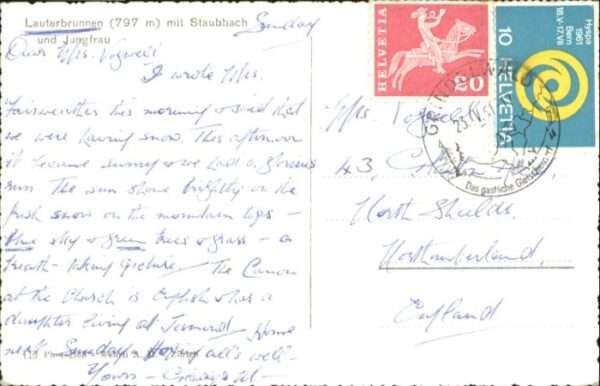 Lauterbrunnen (797 m) mit Staubbach
und Jungfrau
Sunday
Dear Mrs.
I wrote Mrs.
Fairweather this morning & said that
we were having snow. This afternoon
it became sunny & we had a glorious
run. The sun shone brightly on the
fresh snow on the mountain tops –
blue sky & green trees & grass – a
breath-taking picture. The Canon
at the Church is English & has a
daughter living at Home
next Sunday all's well –
Yours –
HELVETIA
20
Hyspa
1961
Bern
18.V.-17.VII
10 HELVETIA
GRINDELWALD
Das gastliche Gletscherdorf
Mrs.
43,
North Shields,
Northumberland,
England